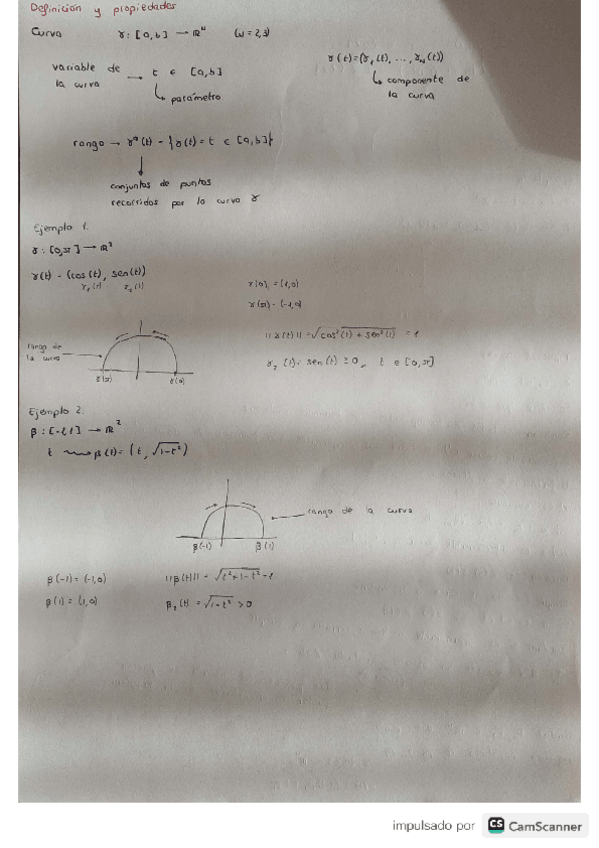 Definición y propiedades
Curva γ: [a,b] → ℝⁿ (n=2,3)
γ(t)=(γ₁(t), ..., γₙ(t))
componente de
la curva
variable de
la curva → t ∈ [a,b]
parámetro
rango → γ*(t) = {γ(t) = t ∈ [a,b]}
conjuntos de puntos
recorridos por la curva γ
Ejemplo 1.
γ: [0,π] → ℝ²
γ(t) = (cos(t), sen(t))
γ₁(t) γ₂(t)
γ(0) = (1,0)
γ(π) = (-1,0)
||γ(t)|| = √cos²(t) + sen²(t) = 1
γ₂(t) = sen(t) ≥ 0, t ∈ [0,π]
rango de
la curva
γ(π) γ(0)
Ejemplo 2.
β: [-1,1] → ℝ²
t ⇝ β(t) = (t, √1-t²)
rango de la curva
β(-1) β(1)
β(-1) = (-1,0)
||β(t)|| = √t²+1-t² = 1
β(1) = (1,0)
β₂(t) = √1-t² >0
impulsado por CS CamScanner